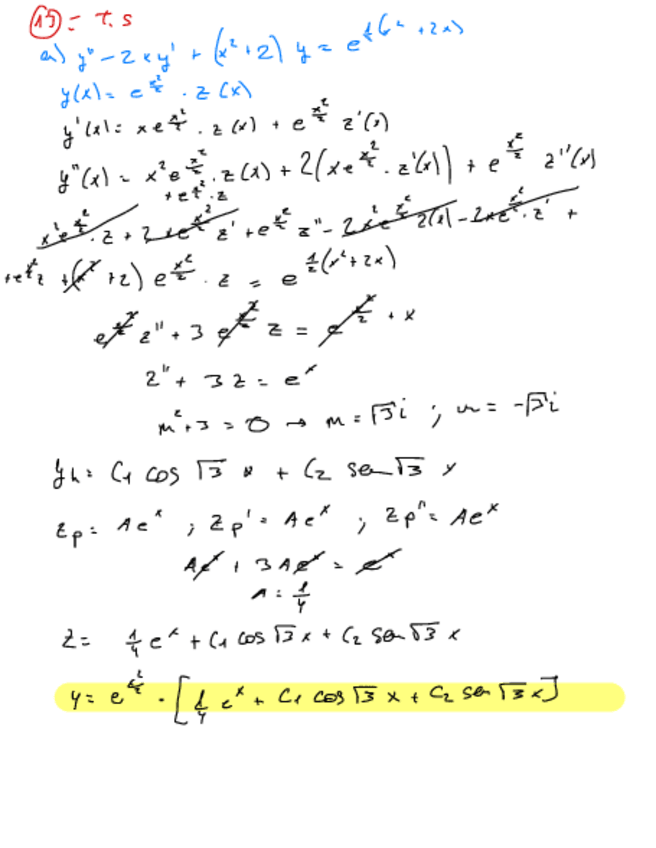 15 = T.S
a) y'' - 2xy' + (x² + 2) y = e^{1/2(x² + 2x)}
y(x) = e^{x²/2} · z(x)
y'(x) = xe^{x²/2} · z(x) + e^{x²/2} z'(x)
y''(x) = x²e^{x²/2} · z(x) + 2(xe^{x²/2} · z'(x)) + e^{x²/2} z''(x)
+ e^{x²/2} · z
x²e^{x²/2} · z + 2xe^{x²/2} z' + e^{x²/2} z'' - 2x²e^{x²/2} z(x) - 2xe^{x²/2} · z' +
+ e^{x²/2} z + (x² + 2) e^{x²/2} · z = e^{1/2(x² + 2x)}
e^{x²/2} z'' + 3 e^{x²/2} z = e^{x²/2 + x}
z'' + 3z = e^x
m² + 3 = 0 → m = √3 i ; m = -√3 i
yh = C1 cos √3 x + C2 sen √3 x
zp = Ae^x ; zp' = Ae^x ; zp'' = Ae^x
Ae^x + 3Ae^x = e^x
A = 1/4
z = 1/4 e^x + C1 cos √3 x + C2 sen √3 x
y = e^{x²/2} · [1/4 e^x + C1 cos √3 x + C2 sen √3 x]